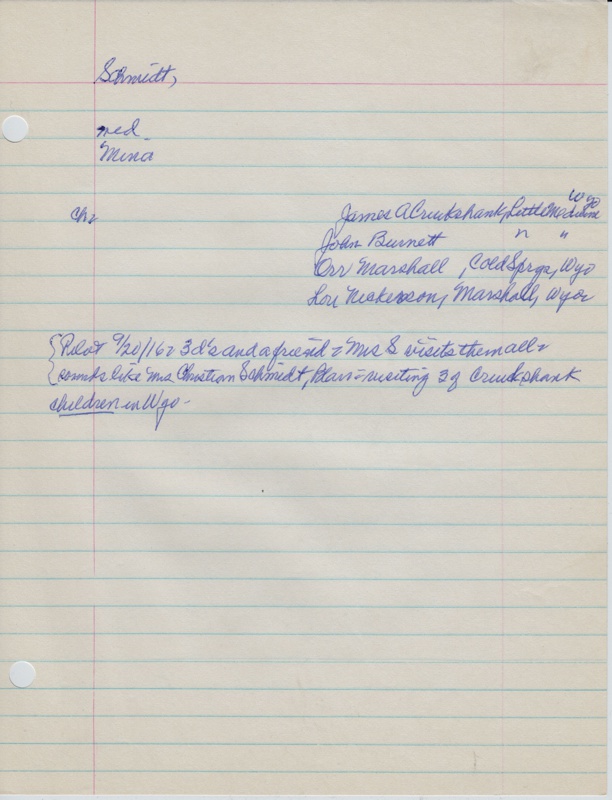 Schmidt,
med.
Mina
Wyo
ch: James A Cruikshank, Little Medicine
John Burnett " "
Orr Marshall, Cold Sprgs, Wyo
Lou Nickerson, Marshall, Wyo
Pilot 9/20/16: 3 d's and a friend: Mrs S visits them all:
sounds like Mrs Christian Schmidt, Blair: visiting 3 of Cruikshank
children in Wyo-